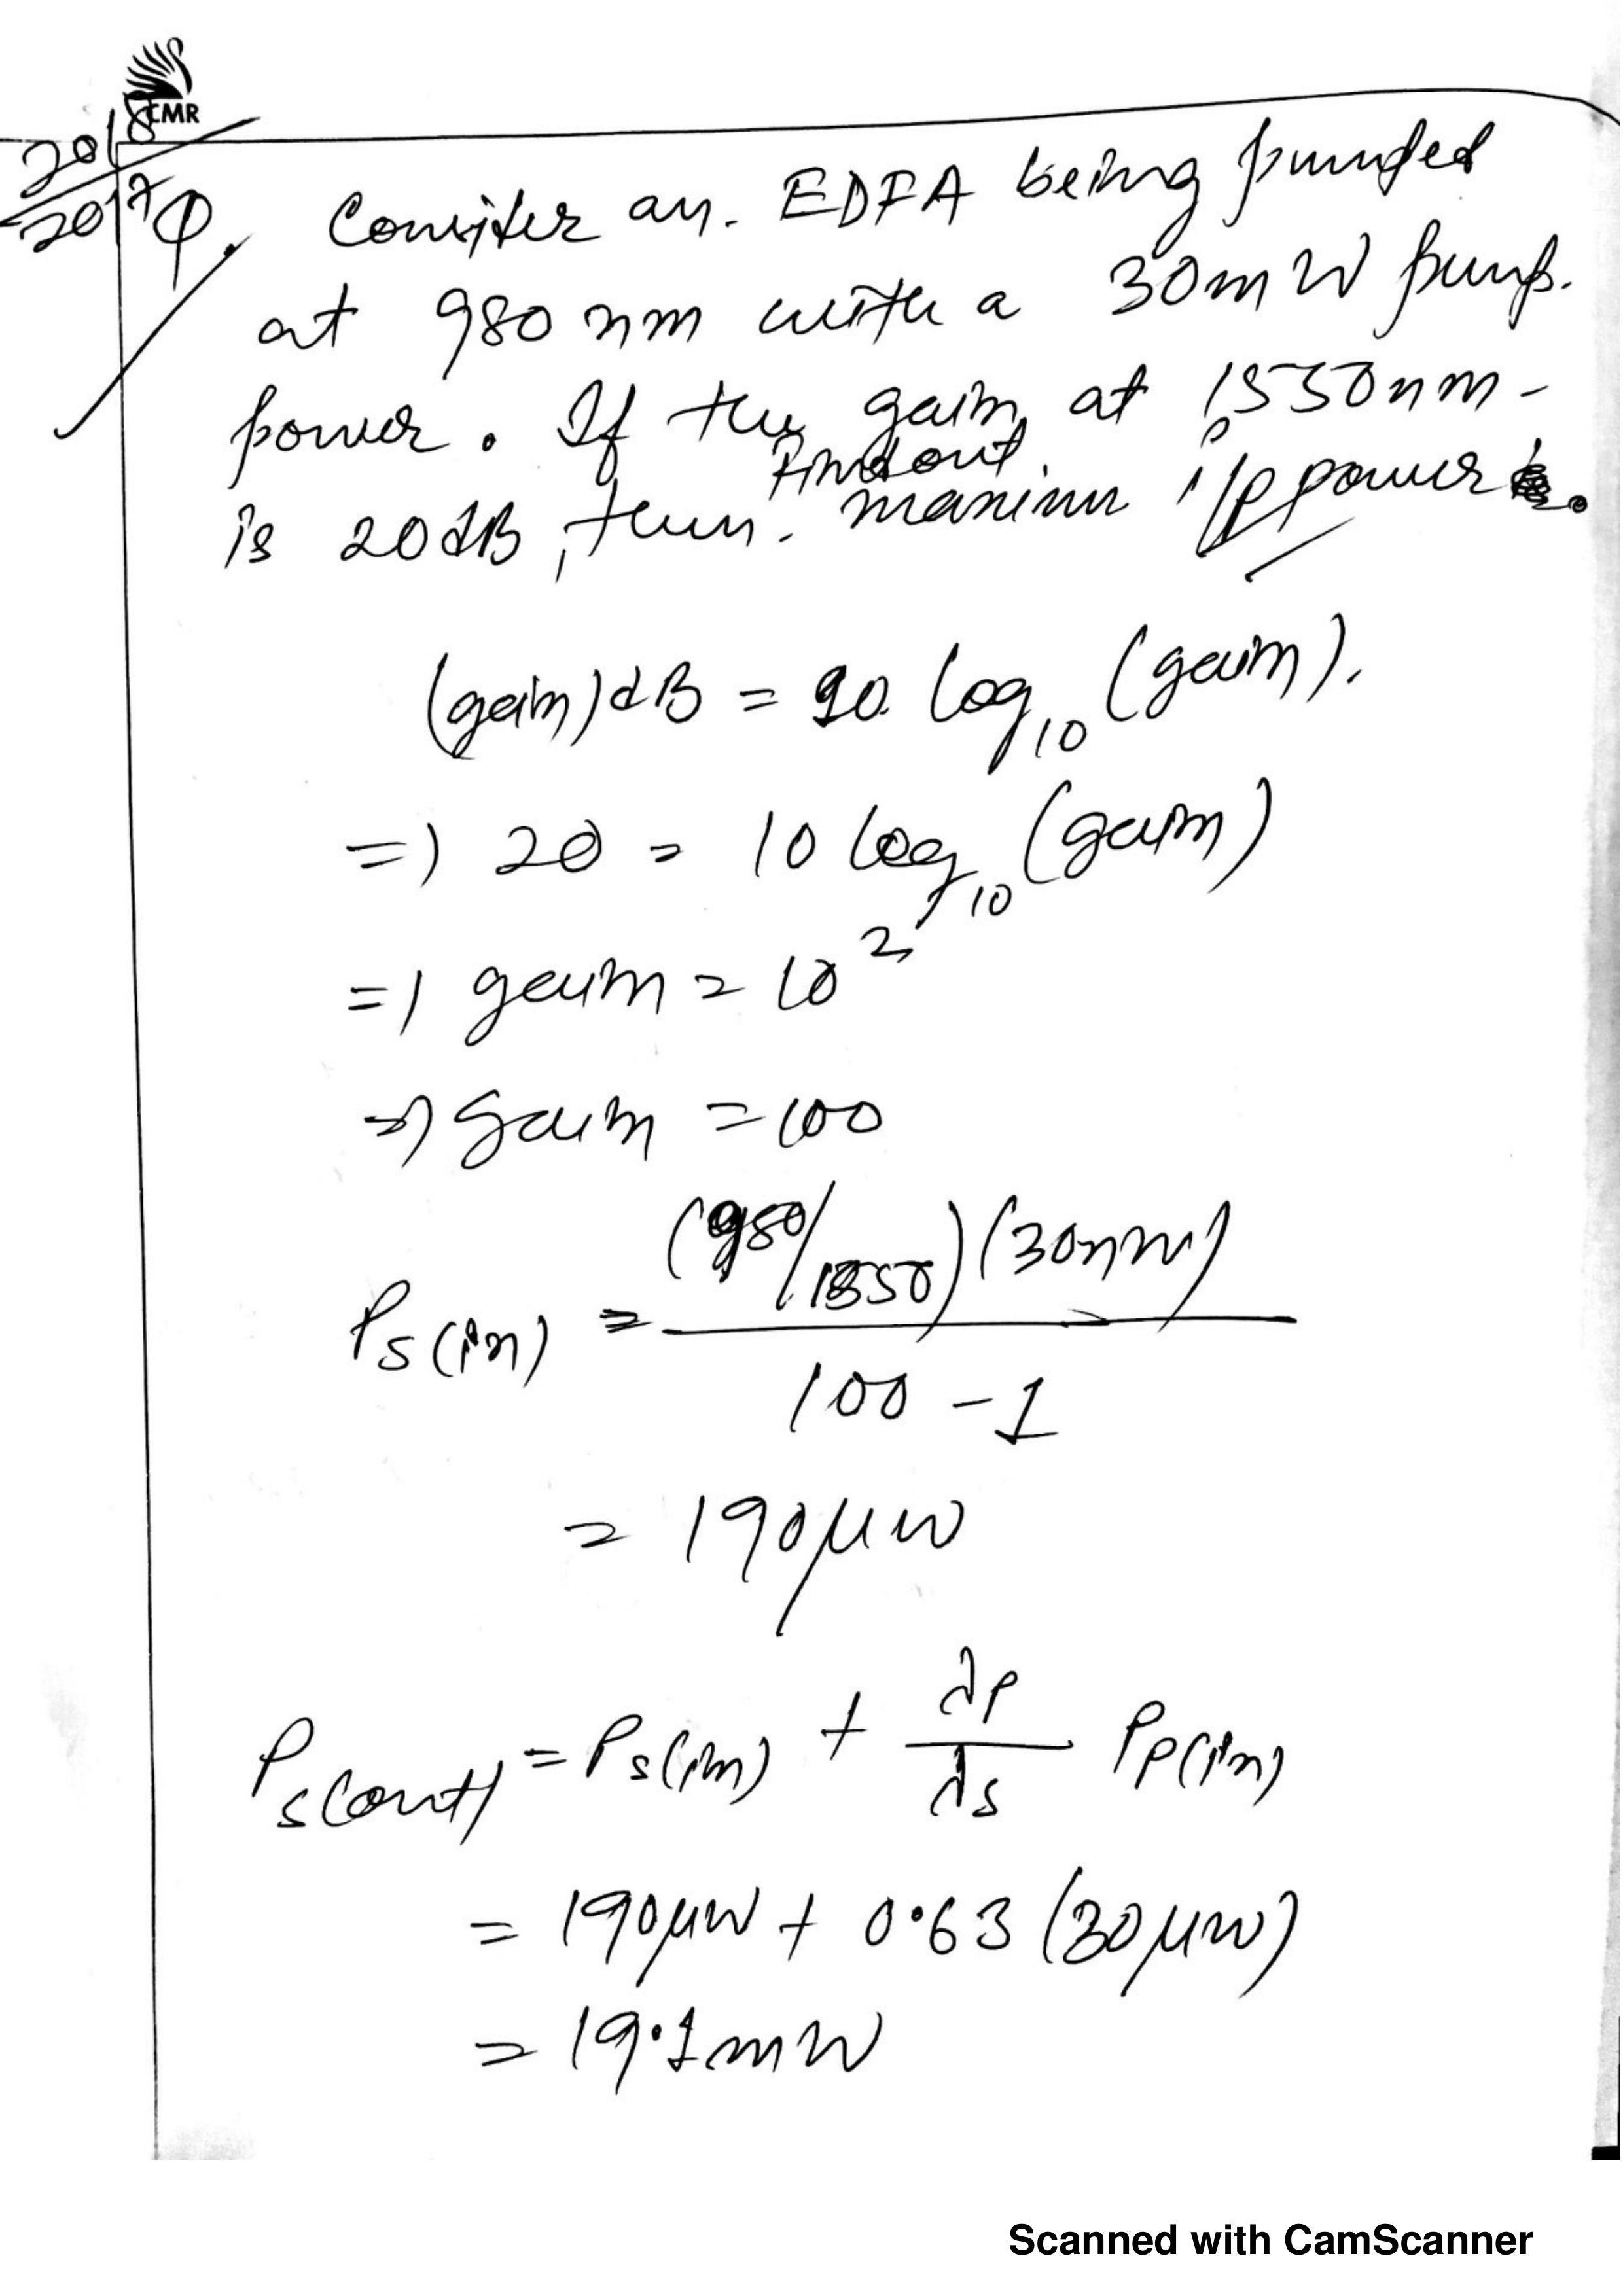 CMR
2018
2017
Q. Consider an. EDFA being pumped
at 980 nm with a 30mW pump.
power. If the gain at 1550nm-
Find out.
is 20dB, then. maximum i/p power.
(gain)dB = 10. log10 (gain).
=) 20 = 10 log10 (gain)
=) gain = 10^2
=) gain = 100
Ps(in) = (980/1550)(30mW)
100 - 1
= 190μW
Ps(out) = Ps(in) + λp/λs Pp(in)
= 190μW + 0.63 (30μW)
= 19.1mW
Scanned with CamScanner